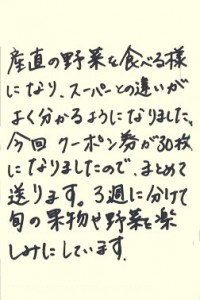 産直の野菜を食べる様
になり、スーパーとの違いが
よく分かるようになりました。
今回クーポン券が30枚
になりましたので、まとめて
送ります。3週に分けて
旬の果物や野菜を楽
しみにしています。